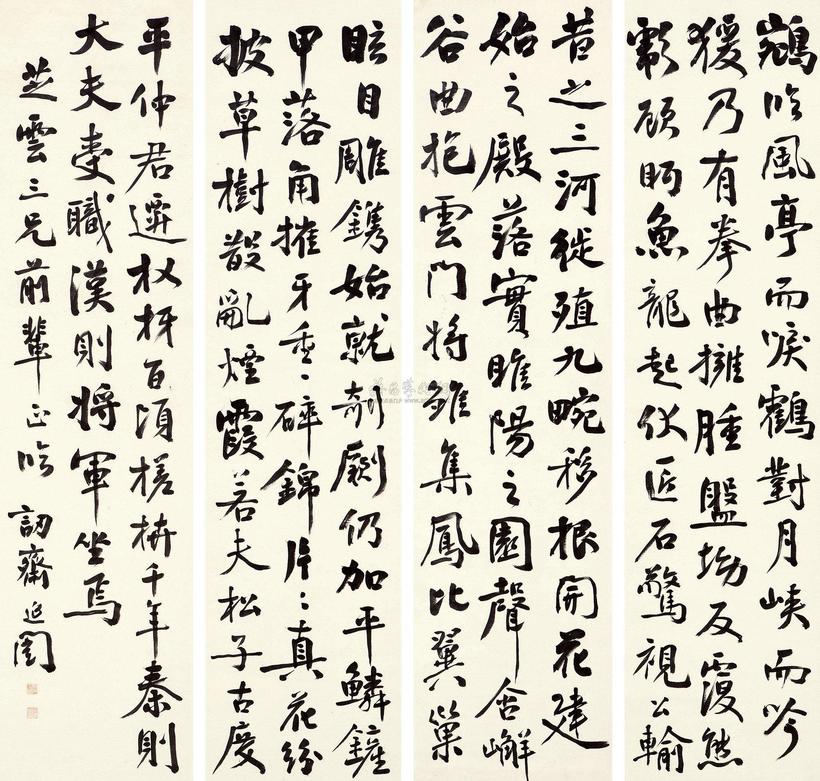 鵷臨風亭而唳鶴對月峽而吟
猨乃有拳曲擁腫盤坳反覆熊
彪顧眄魚龍起伏匠石驚視公輸
昔之三河徙殖九畹移根開花建
始之殿落實睢陽之園聲含嶰
谷曲抱雲門將雛集鳳比翼巢
眩目雕鐫始就剞劂仍加平鱗鏟
甲落角摧牙重〻碎錦片〻真花紛
披草樹散亂煙霞若夫松子古度
平仲君遷杈枒百頃槎枿千年秦則
大夫受職漢則將軍坐焉
芝雲三兄前輩正臨 訒齋延闓